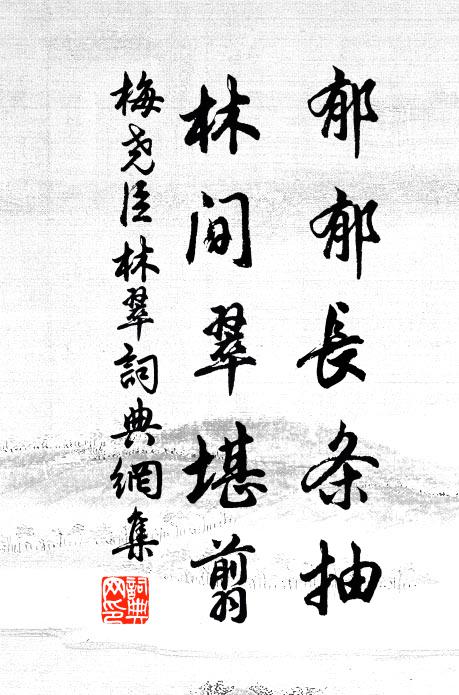 郁郁長条抽
林间翠堪翦
梅尧臣林翠詞典網集
詞典网印